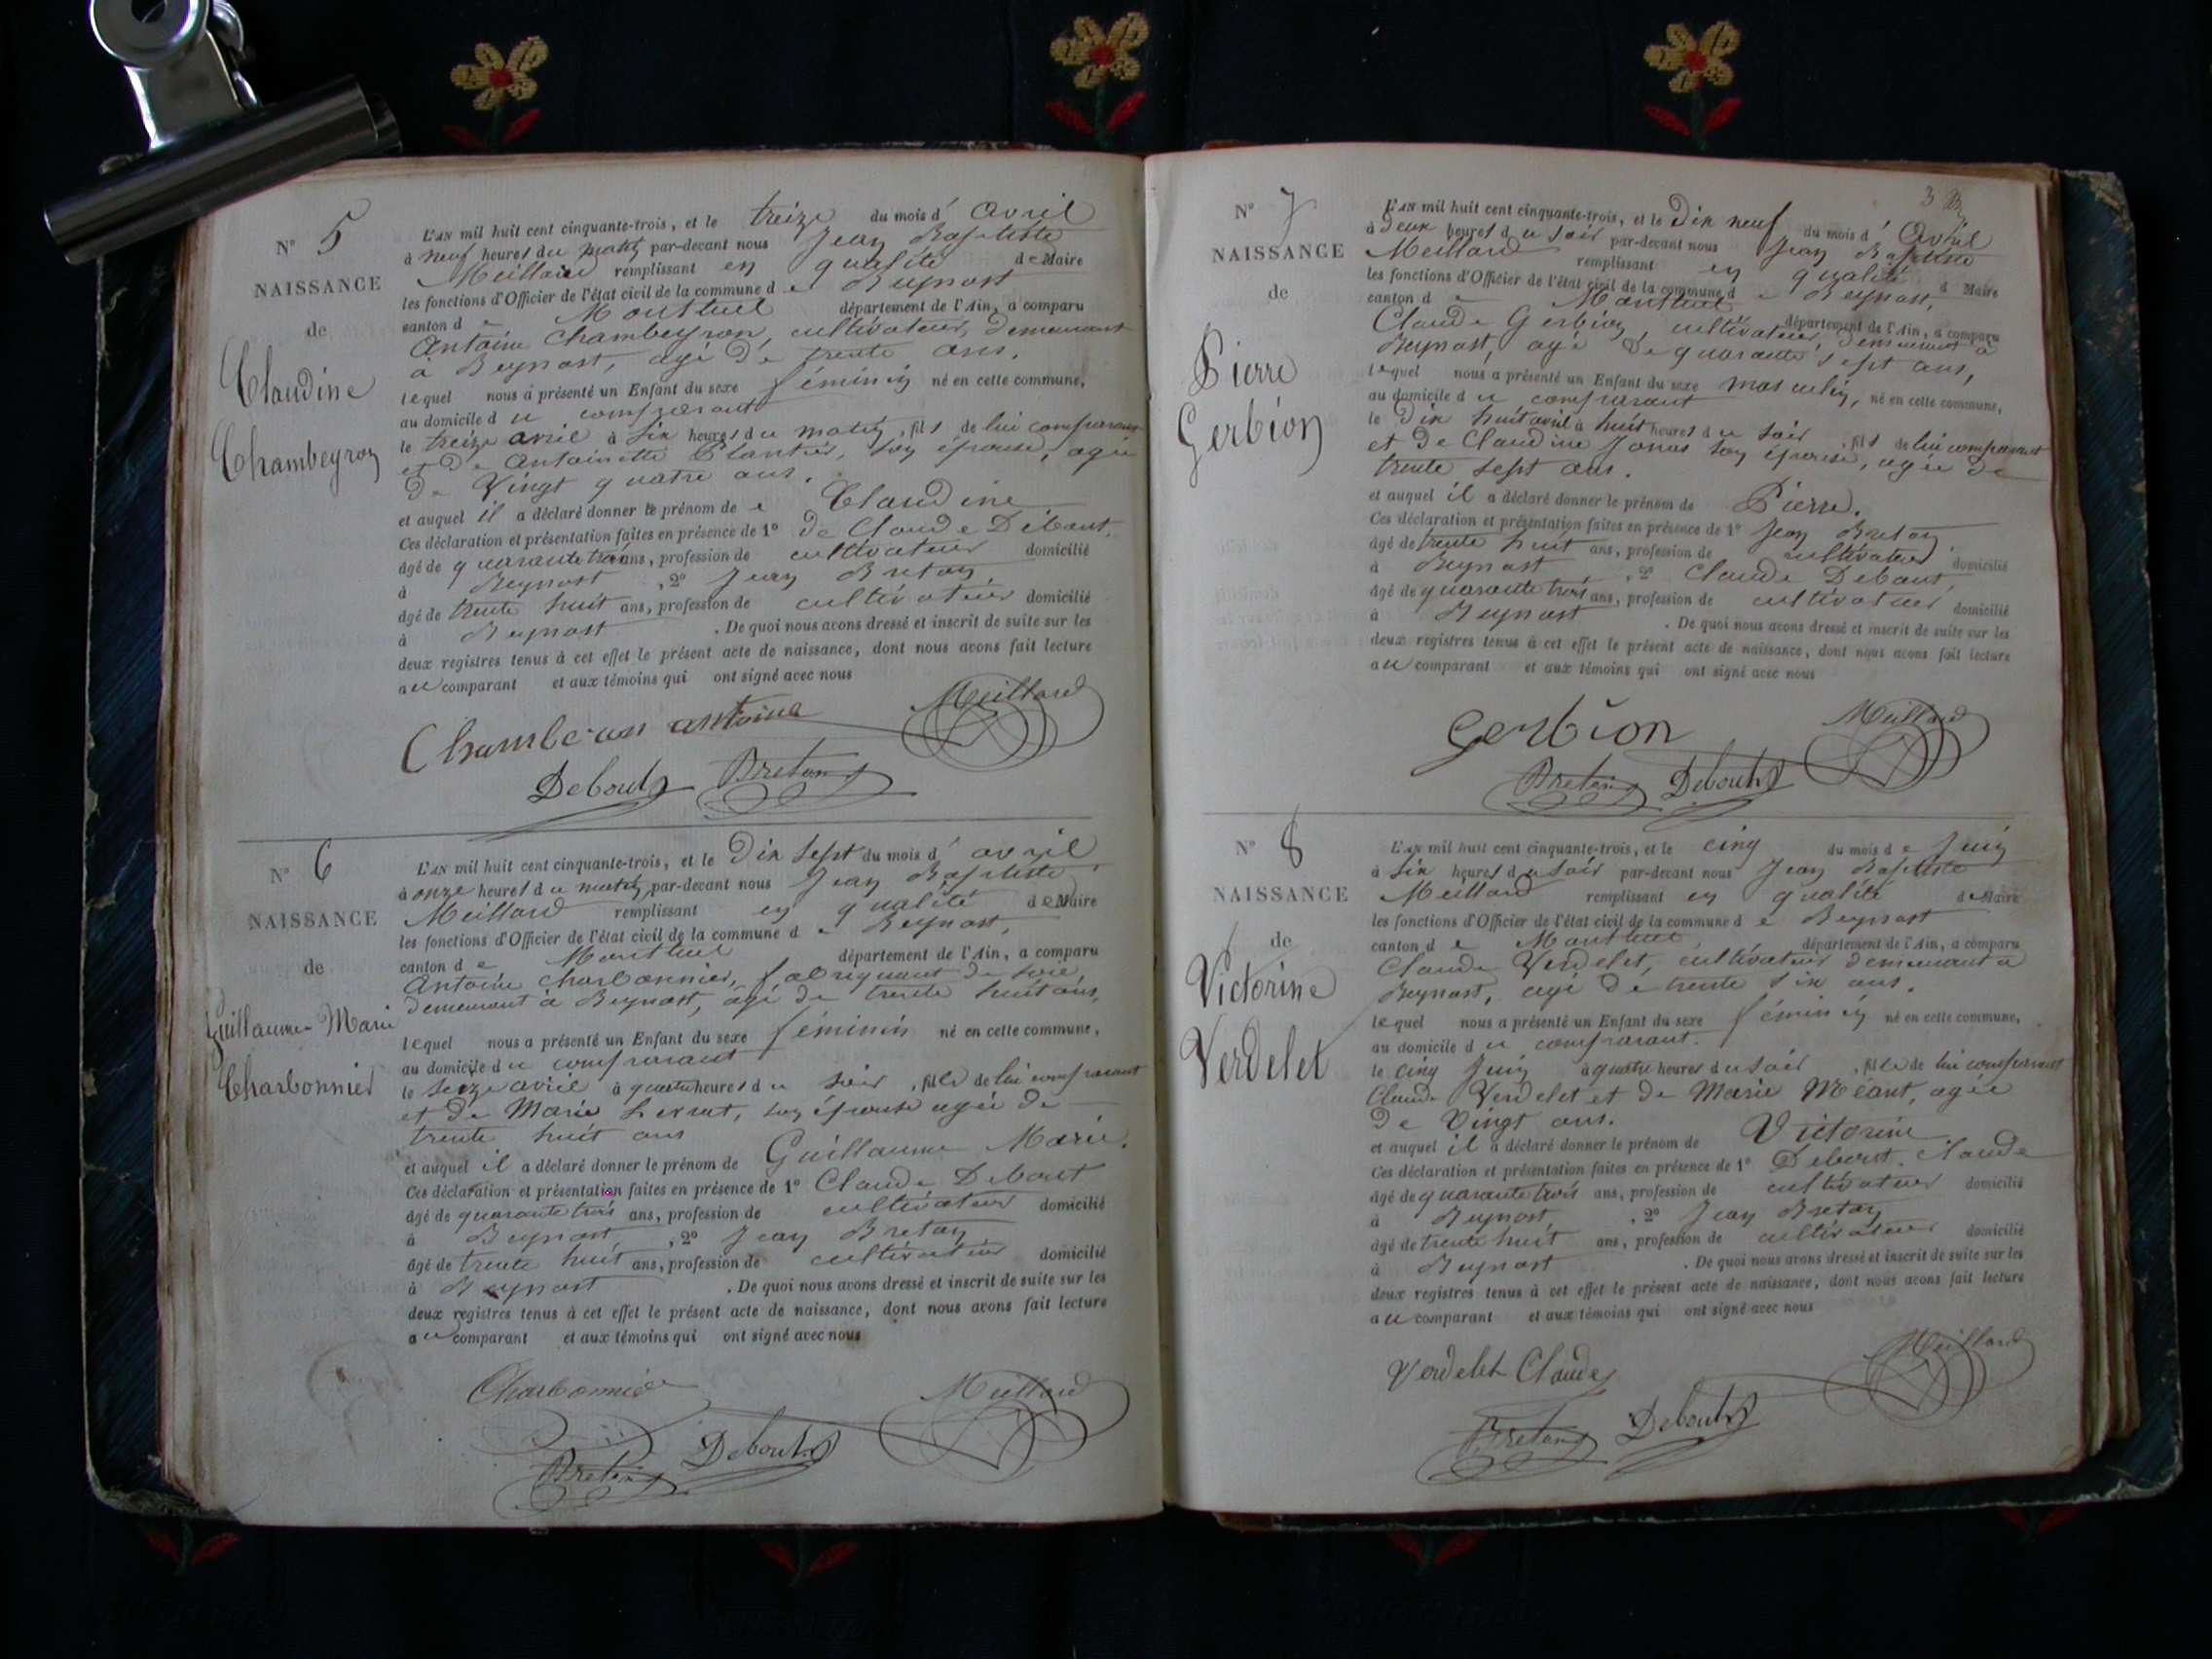 N° 5
NAISSANCE
de
Claudine
Chambeyron
L'AN mil huit cent cinquante-trois, et le treize du mois d' avril
à neuf heures du matin par-devant nous Jean Baptiste
Meillard remplissant en qualité de Maire
les fonctions d'Officier de l'état civil de la commune de Beynost
canton de Montluel département de l'Ain, a comparu
Antoine Chambeyron, cultivateur, demeurant
à Beynost, agé de trente ans,
lequel nous a présenté un Enfant du sexe féminin né en cette commune,
au domicile du comparant
le treize avril à six heures du matin, fils de lui comparant
et de Antoinette Plantier, son épouse, agée
de Vingt quatre ans.
et auquel il a déclaré donner le prénom de Claudine
Ces déclaration et présentation faites en présence de 1° de Claude Debout,
âgé de quarante trois ans, profession de cultivateur domicilié
à Beynost, 2° Jean Breton,
âgé de trente huit ans, profession de cultivateur domicilié
à Beynost. De quoi nous avons dressé et inscrit de suite sur les
deux registres tenus à cet effet le présent acte de naissance, dont nous avons fait lecture
au comparant et aux témoins qui ont signé avec nous
antoine Meillard
Debout Breton
N° 6
NAISSANCE
de
Guillaume-Marie
Charbonnier
L'AN mil huit cent cinquante-trois, et le Dix sept du mois d' avril
à onze heures du matin par-devant nous Jean Baptiste
Meillard remplissant en qualité de Maire
les fonctions d'Officier de l'état civil de la commune de Beynost,
canton de Montluel département de l'Ain, a comparu
Antoine Charbonnier, fabriquant de soie,
demeurant à Beynost, âgé de trente huit ans,
lequel nous a présenté un Enfant du sexe féminin né en cette commune,
au domicile du comparant
le seize avril à quatre heures du soir, fils de lui comparant
et de Marie son épouse agée de
trente huit ans
et auquel il a déclaré donner le prénom de Guillaume Marie.
Ces déclaration et présentation faites en présence de 1° Claude Debout
âgé de quarante trois ans, profession de cultivateur domicilié
à Beynost, 2° Jean Breton,
âgé de trente huit ans, profession de cultivateur domicilié
à Beynost. De quoi nous avons dressé et inscrit de suite sur les
deux registres tenus à cet effet le présent acte de naissance, dont nous avons fait lecture
au comparant et aux témoins qui ont signé avec nous
Charbonnier Meillard
Breton Debout
3
N° 7
NAISSANCE
de
Pierre
Gerbion
L'AN mil huit cent cinquante-trois, et le Dix neuf du mois d' Avril
à deux heures du soir par-devant nous Jean Baptiste
Meillard remplissant en qualité d Maire
les fonctions d'Officier de l'état civil de la commune de Beynost,
canton de Montluel département de l'Ain, a comparu
Claude Gerbion, cultivateur, demeurant à
Beynost, agé de quarante sept ans,
lequel nous a présenté un Enfant du sexe masculin, né en cette commune,
au domicile du comparant
le Dix huit avril à huit heures du soir, fils de lui comparant
et de Claudine Jonas son épouse, agée de
trente sept ans.
et auquel il a déclaré donner le prénom de Pierre.
Ces déclaration et présentation faites en présence de 1° Jean Breton,
âgé de trente huit ans, profession de cultivateur domicilié
à Beynost, 2° Claude Debout,
âgé de quarante trois ans, profession de cultivateur domicilié
à Beynost. De quoi nous avons dressé et inscrit de suite sur les
deux registres tenus à cet effet le présent acte de naissance, dont nous avons fait lecture
au comparant et aux témoins qui ont signé avec nous
Gerbion Meillard
Breton Debout
N° 8
NAISSANCE
de
Victorine
Verdelet
L'AN mil huit cent cinquante-trois, et le cinq du mois de Juin
à six heures du soir par-devant nous Jean Baptiste
Meillard remplissant en qualité de Maire
les fonctions d'Officier de l'état civil de la commune de Beynost
canton de Montluel, département de l'Ain, a comparu
Claude Verdelet, cultivateur demeurant à
Beynost, agé de trente six ans.
lequel nous a présenté un Enfant du sexe féminin né en cette commune,
au domicile du comparant.
le cinq Juin à quatre heures du soir, fille de lui comparant
Claude Verdelet et de Marie Méant, agée
de Vingt ans.
et auquel il a déclaré donner le prénom de Victorine
Ces déclaration et présentation faites en présence de 1° Debout, Claude
âgé de quarante trois ans, profession de cultivateur domicilié
à Beynost, 2° Jean Breton
âgé de trente huit ans, profession de cultivateur domicilié
à Beynost. De quoi nous avons dressé et inscrit de suite sur les
deux registres tenus à cet effet le présent acte de naissance, dont nous avons fait lecture
au comparant et aux témoins qui ont signé avec nous
Verdelet Claude Meillard
Breton Debout